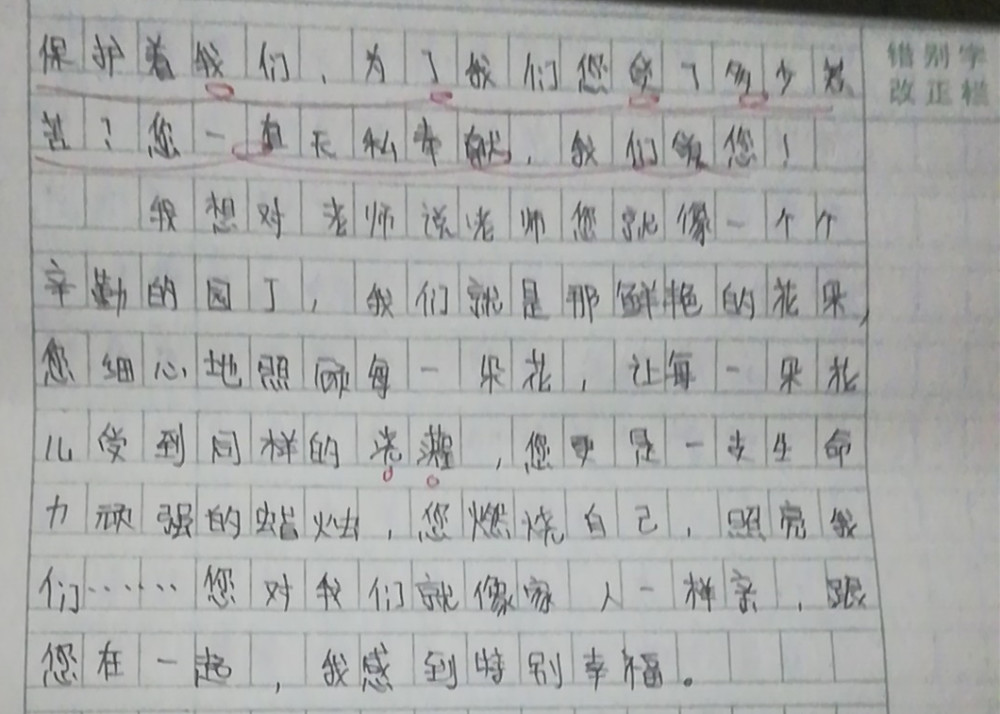 保护着我们，为了我们您受了多少艰 错别字
苦？您一直无私奉献，我们爱您！ 改正栏
我想对老师说老师您就像一个个
辛勤的园丁，我们就是那鲜艳的花朵，
您细心地照顾每一朵花，让每一朵花
儿受到同样的光，您更是一支生命
力顽强的蜡烛，您燃烧自己，照亮我
们……您对我们就像家人一样亲，跟
您在一起，我感到特别幸福。